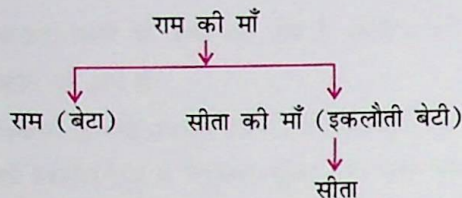 राम की माँ
राम (बेटा) सीता की माँ (इकलौती बेटी)
सीता